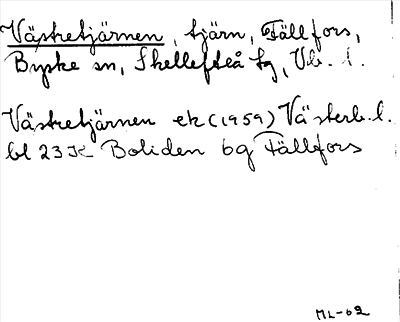 Västretjärnen, tjärn, Fällfors,
Byske sn, Skellefteå tg, Vb. l.
Västretjärnen ek (1959) Västerb. l.
bl 23 K Boliden 6g Fällfors
ML-62